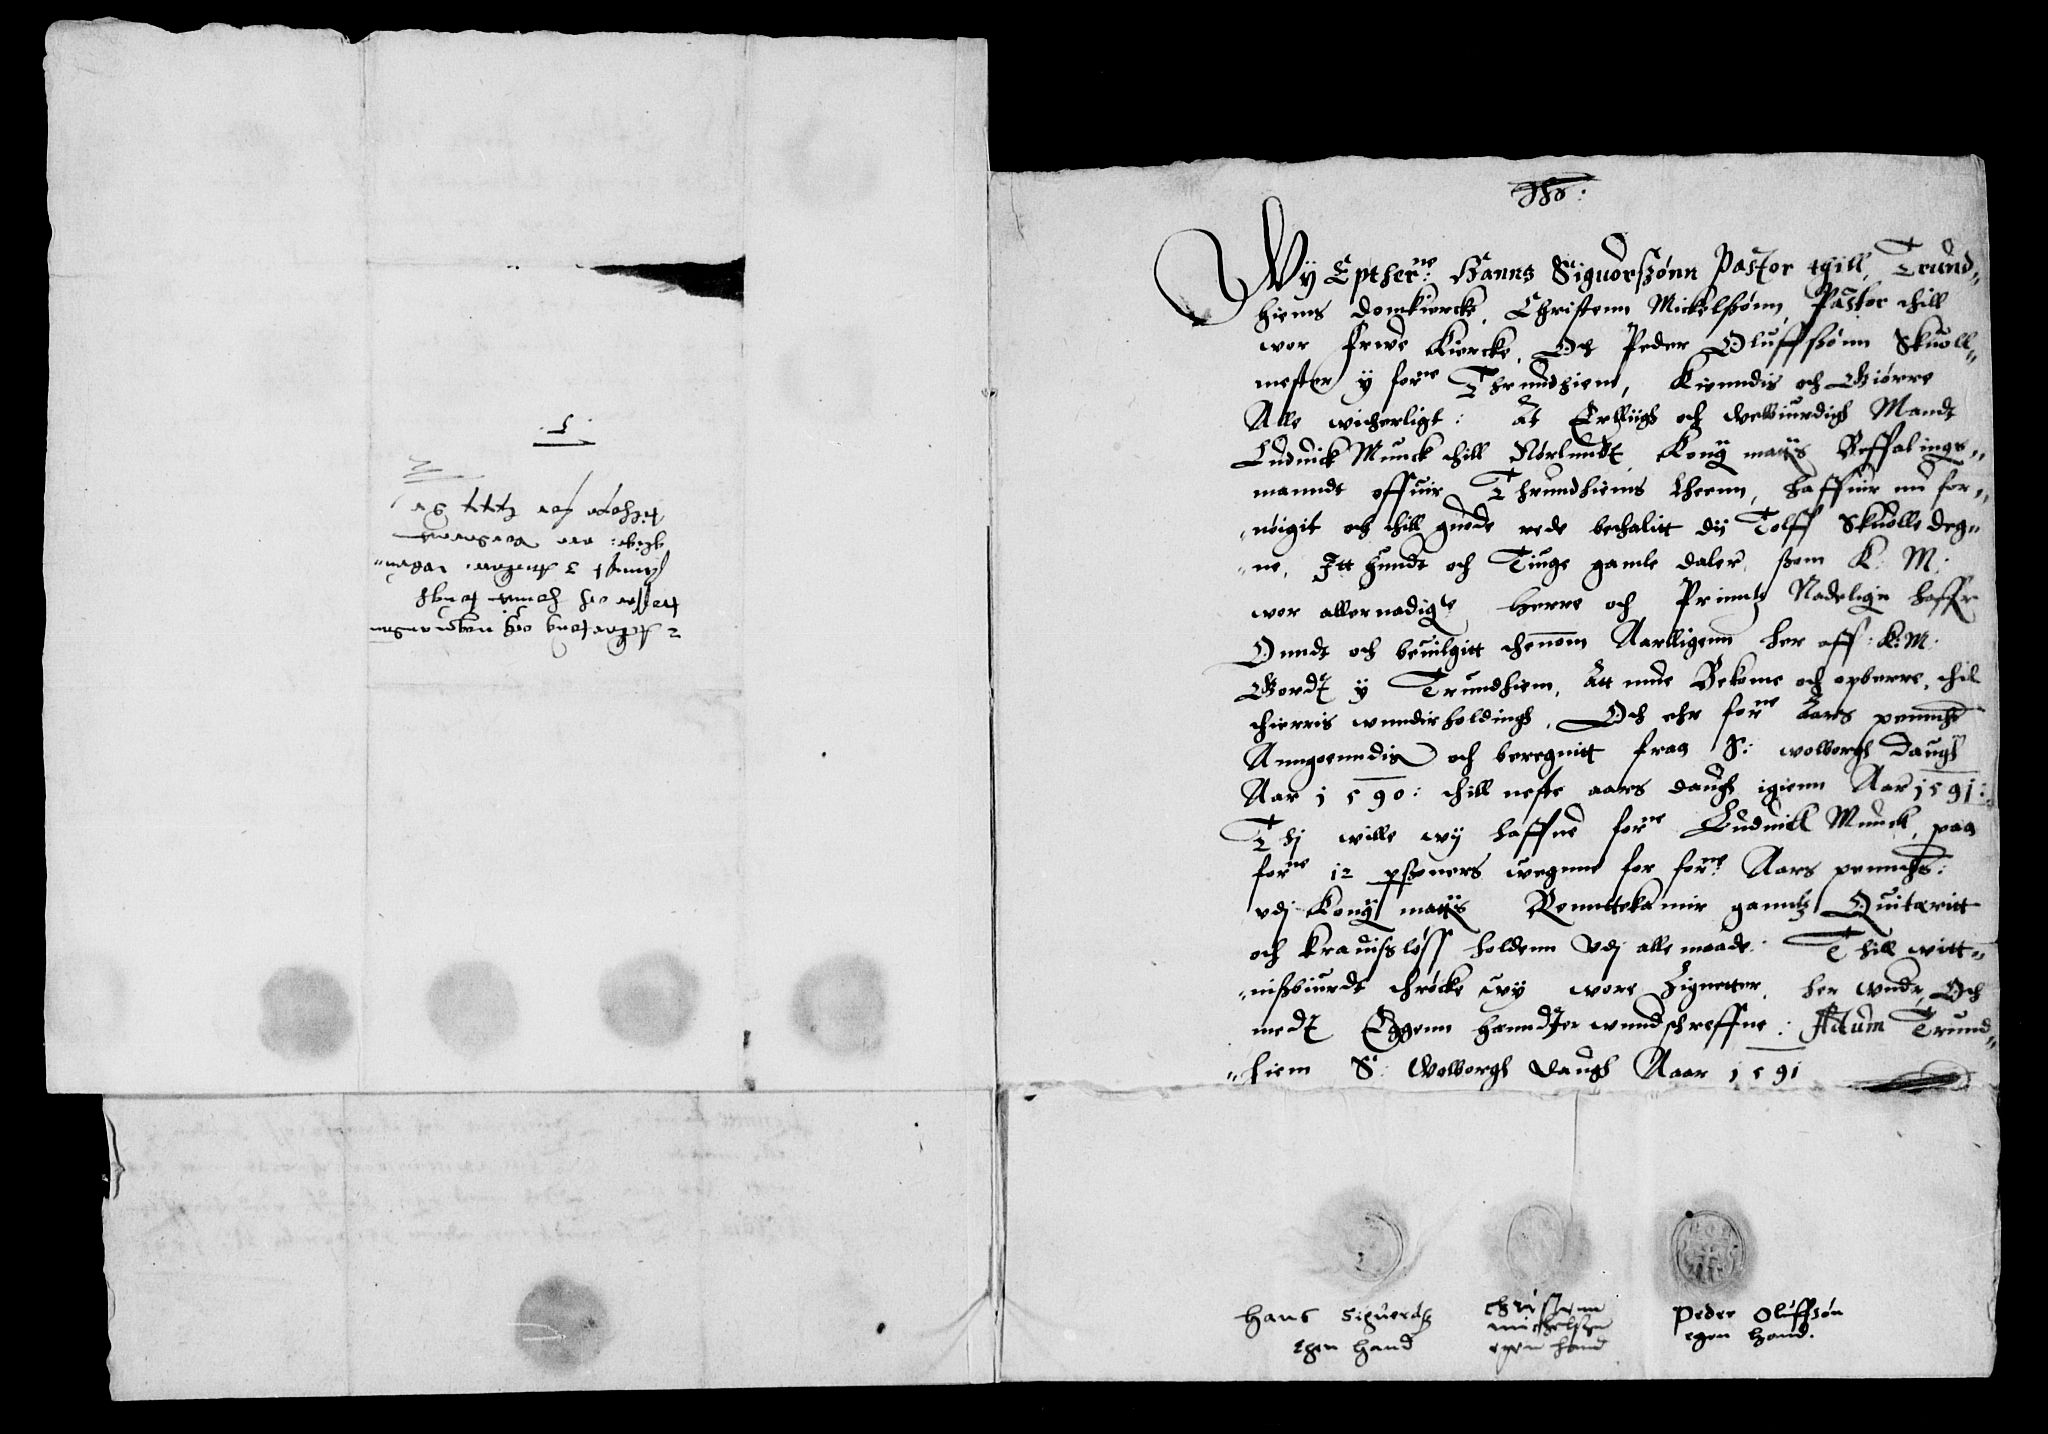 Jhs:
Wÿ Epther^ne: Hanns Siguorszønn Pastor thill Trund„
hiems domkiercke, Christenn Mickelszønn, Pastor thill
wor frwe Kiercke, Och Peder Oluffszønn Skuoll„
mester ÿ for^ne Thrundhiem, Kienndis och Giørre
Alle witherligt: At Erlliigh och welbiurdigh Mandt
Luduick Munck thill Nørlundt Kong maÿts Beffalings„
manndt offuir Thrundhiems Lheenn, haffuir nu for„
„nøigit och thill guode rede bethalitt dij Tolff Skuolledeg„
„ne, Itt hundt och Tiuge gamle daler, som K: M:
wor allernadigste Herre och Prinntz Nadeligen haffr
Onndt och beuilgitt thenom Aarlligenn her aff: K: M:
Gordt ÿ Trundhiem, Att mue Bekome och opberre, thil
thierris wnnderholdingh. Och ehr for^ne Aars pennghe
Anngaenndis och beregnitt fraa S: wolborgh daugh
Aar 1590: thill neste aars daugh igienn Aar 1591:
Thj wille wÿ haffue for^ne Luduick Munck, paa
for^ne 12 psoners wegnne for for^ne Aars pennghe:
vdj Kong maÿts Renntekamir ganntz Quiteritt
och krauisløss holdenn vdj alle maade: Thill witt„
„niszbiurdt thrøcke wÿ wore Zignetter her wnder, Och
medt Eggenn hanndter wnndschreffne: Actum Trund„
„hiem S: Wolborgh daugh Aaar 1591
Hans Siguerdsz
egen hand
Christenn
michelszen
egen hand
Peder Oluffsøn
egen hand.